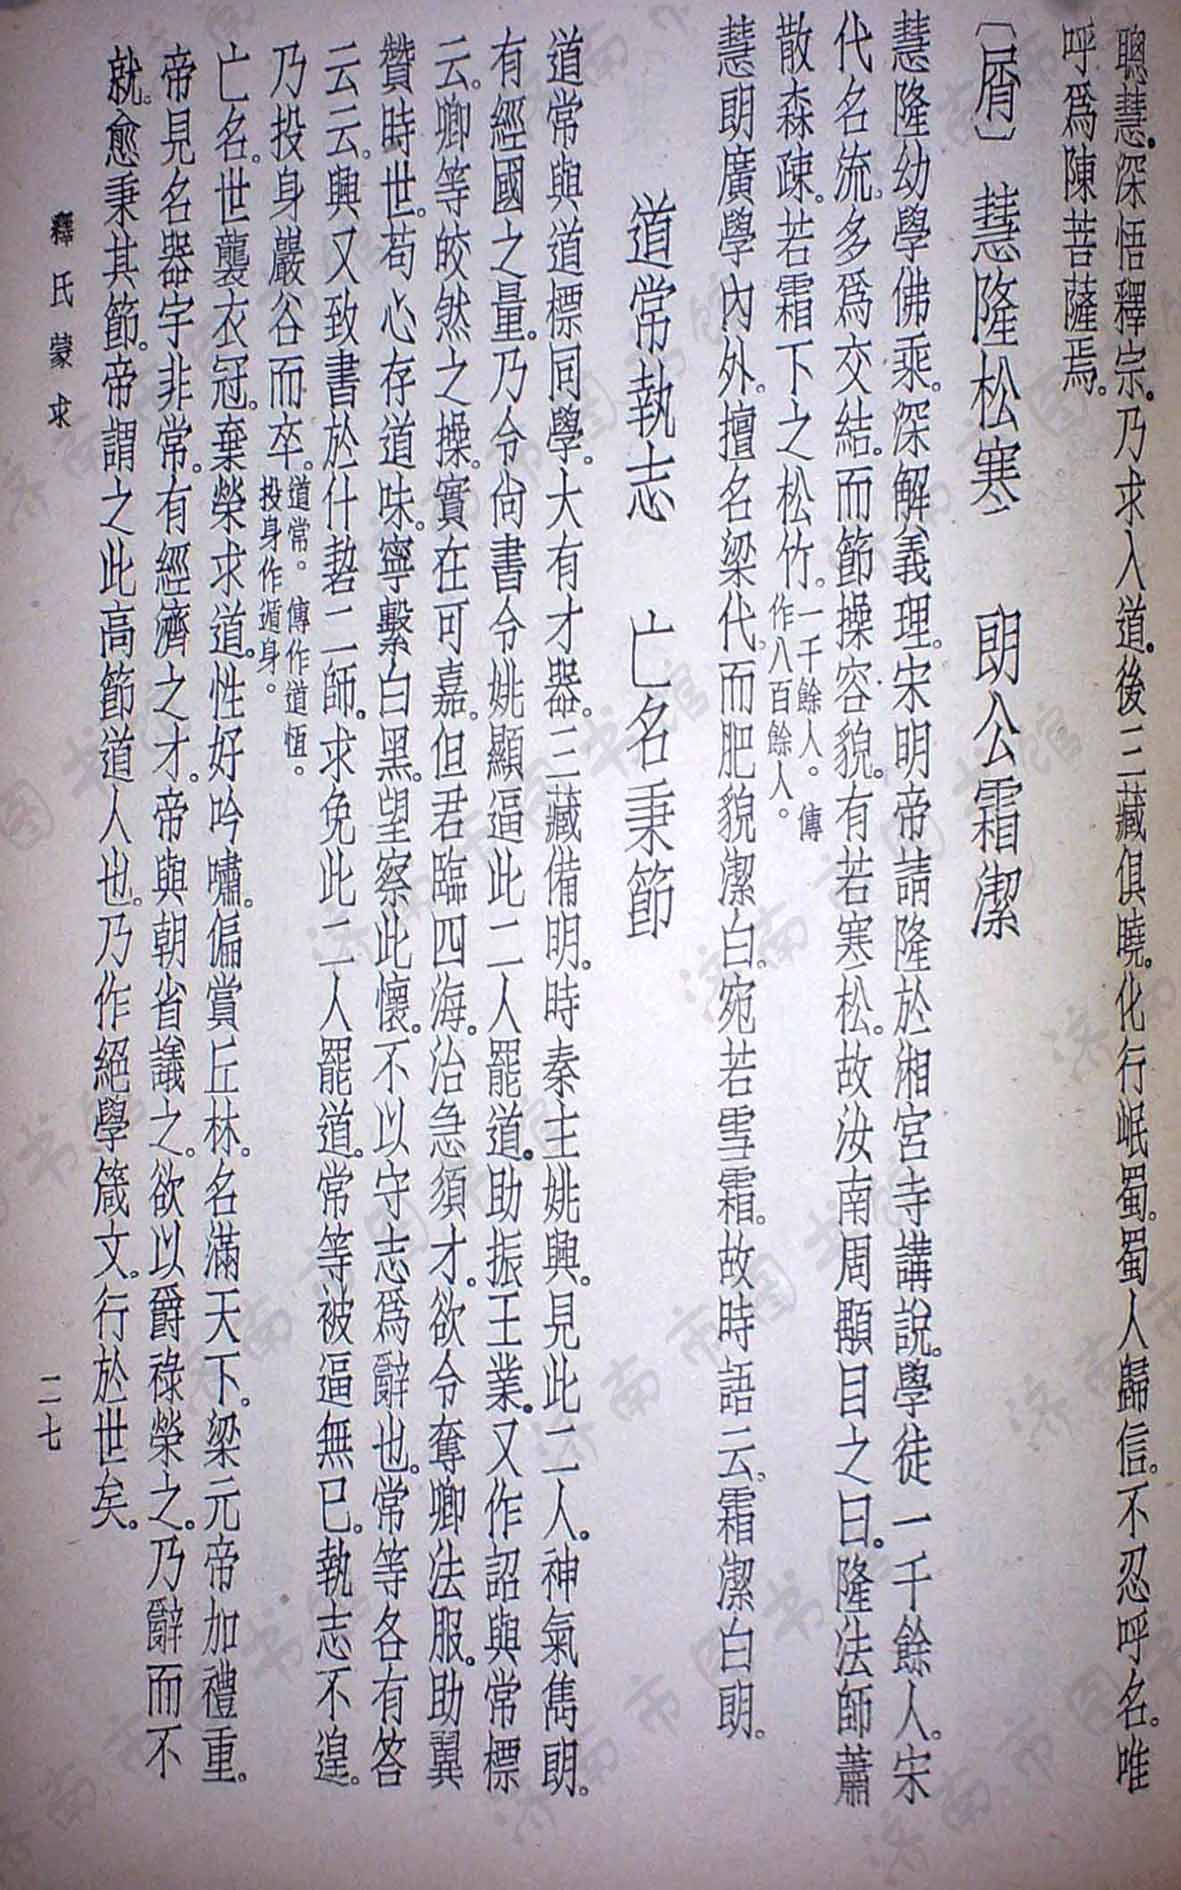 聰慧。深悟釋宗。乃求入道。後三藏俱曉。化行岷蜀。蜀人歸信。不忍呼名。唯
呼爲陳菩薩焉。
〔屑〕慧隆松寒　朗公霜潔
慧隆幼學佛乘。深解義理。宋明帝請隆於湘宮寺講說。學徒一千餘人。宋
代名流。多爲交結。而節操容貌。有若寒松。故汝南周顒目之曰。隆法師蕭
散森疎。若霜下之松竹。一千餘人。傳作八百餘人。
慧朗廣學內外。擅名梁代。而肥貌潔白。宛若雪霜。故時語云。霜潔白朗。
道常執志　亡名秉節
道常與道標同學。大有才器。三藏備明。時秦主姚興。見此二人。神氣雋朗。
有經國之量。乃令尙書令姚顯逼此二人罷道。助振王業。又作詔與常標
云。卿等皎然之操。實在可嘉。但君臨四海。治急須才。欲令奪卿法服。助翼
贊時世。苟心存道味。寧繫白黑。望察此懷。不以守志爲辭也。常等各有答
云云。興又致書於什䂮二師。求免此二人罷道。常等被逼無已。執志不遑。
乃投身嚴谷而卒。道常。傳作道恆。投身作遁身。
亡名。世襲衣冠。棄榮求道。性好吟嘯。偏賞丘林。名滿天下。梁元帝加禮重。
帝見名器宇非常。有經濟之才。帝與朝省議之。欲以爵祿榮之。乃辭而不
就。愈秉其節。帝謂之此高節道人也。乃作絕學箴文。行於世矣。
釋氏蒙求
二七
济南市图书馆